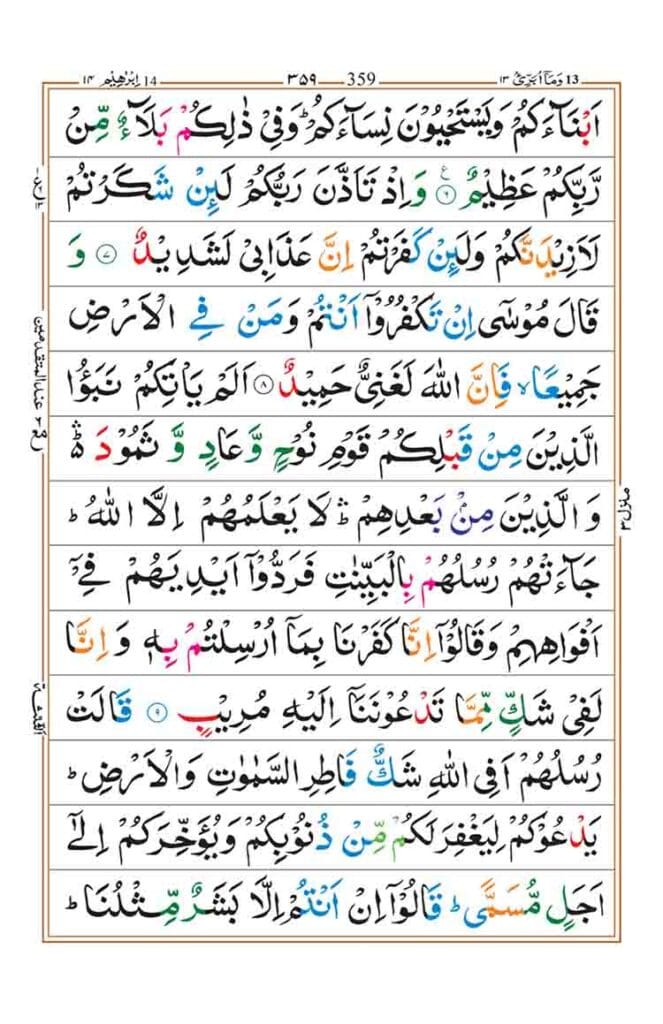 ١٤ اِبْرٰهِيْم 14 ٣٥٩ 359 ١٣ وَمَآ اُبَرِّئُ 13
اَبْنَآءَكُمْ وَيَسْتَحْيُوْنَ نِسَآءَكُمْ ؕ وَفِيْ ذٰلِكُمْ بَلَآءٌ مِّنْ
رَّبِّكُمْ عَظِيْمٌ ۝٦ ع وَاِذْ تَاَذَّنَ رَبُّكُمْ لَئِنْ شَكَرْتُمْ
لَاَزِيْدَنَّكُمْ وَلَئِنْ كَفَرْتُمْ اِنَّ عَذَابِيْ لَشَدِيْدٌ ۝٧ وَ
قَالَ مُوْسٰٓى اِنْ تَكْفُرُوْٓا اَنْتُمْ وَمَنْ فِي الْاَرْضِ
جَمِيْعًا ۙ فَاِنَّ اللّٰهَ لَغَنِيٌّ حَمِيْدٌ ۝٨ اَلَمْ يَاْتِكُمْ نَبَؤُا
الَّذِيْنَ مِنْ قَبْلِكُمْ قَوْمِ نُوْحٍ وَّعَادٍ وَّ ثَمُوْدَ ۛؕ
وَالَّذِيْنَ مِنْۢ بَعْدِهِمْ ۛؕ لَا يَعْلَمُهُمْ اِلَّا اللّٰهُ ؕ
جَآءَتْهُمْ رُسُلُهُمْ بِالْبَيِّنٰتِ فَرَدُّوْٓا اَيْدِيَهُمْ فِيْٓ
اَفْوَاهِهِمْ وَقَالُوْٓا اِنَّا كَفَرْنَا بِمَآ اُرْسِلْتُمْ بِهٖ وَاِنَّا
لَفِيْ شَكٍّ مِّمَّا تَدْعُوْنَنَآ اِلَيْهِ مُرِيْبٍ ۝٩ قَالَتْ
رُسُلُهُمْ اَفِي اللّٰهِ شَكٌّ فَاطِرِ السَّمٰوٰتِ وَالْاَرْضِ ؕ
يَدْعُوْكُمْ لِيَغْفِرَ لَكُمْ مِّنْ ذُنُوْبِكُمْ وَيُؤَخِّرَكُمْ اِلٰٓى
اَجَلٍ مُّسَمًّى ؕ قَالُوْٓا اِنْ اَنْتُمْ اِلَّا بَشَرٌ مِّثْلُنَا ؕ
منزل ٣